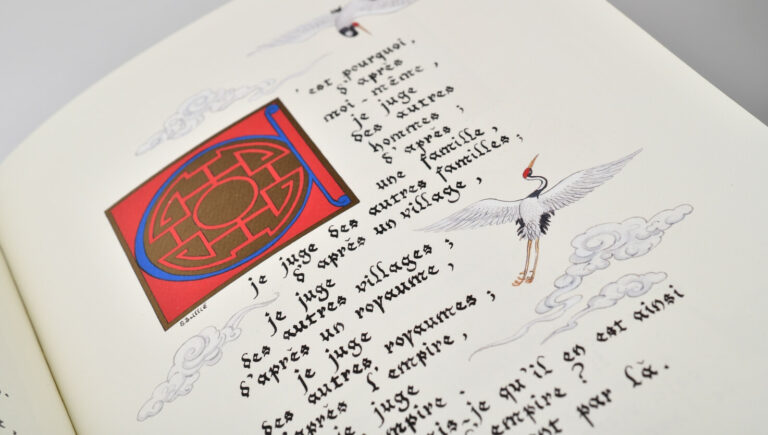 'est pourquoi,
d'après
moi-même,
je juge
des autres
hommes ;
d'après
une famille,
je juge des autres familles ;
d'après un village,
je juge
des autres villages ;
d'après un royaume,
je juge
des autres royaumes ;
d'après l'empire,
je juge
empire ;
ais-je qu'il en est ainsi
empire ?
nt par là.